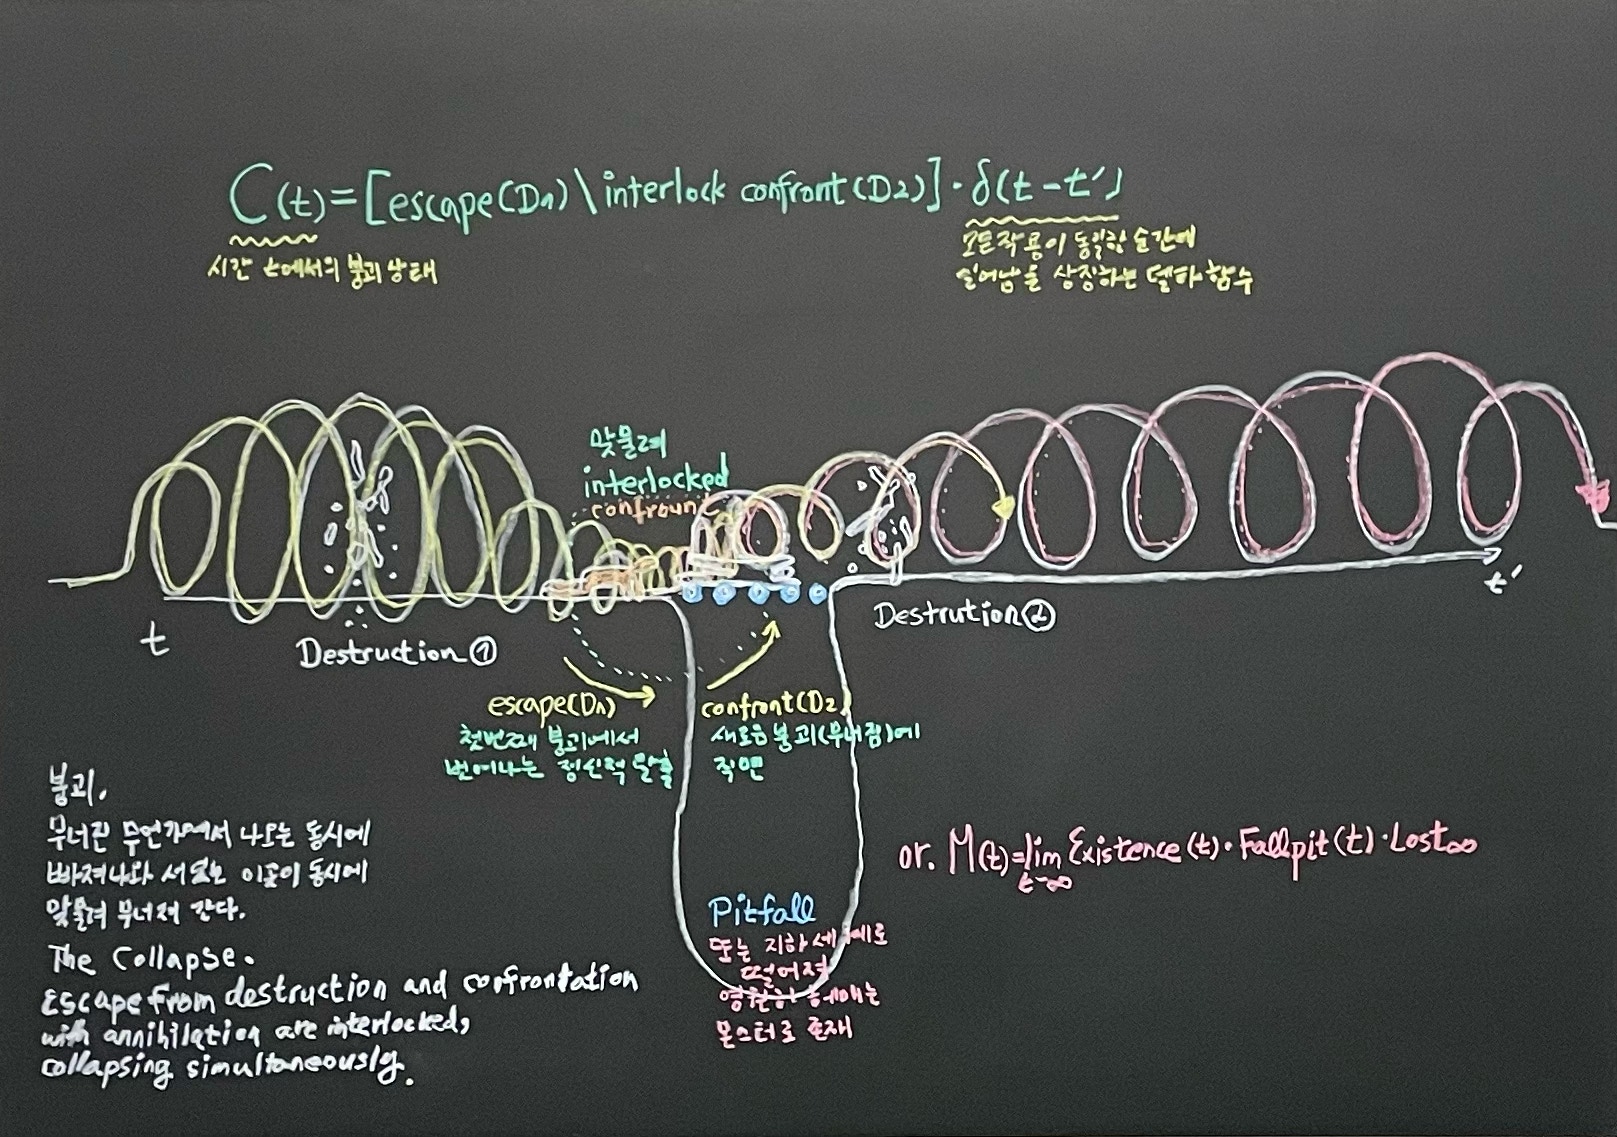 C(t)=[escape(D₁)\interlock confront(D2)]·δ(t-t')
시간 t에서의 붕괴 상태
모든작용이 동일한 순간에
일어남을 상징하는 델타 함수
맞물려
interlocked
confrount
t
Destruction①
Destrution②
t'
escape(D₁)
첫번째 붕괴에서
벗어나는 정신적 탈출
confront(D2)
새로운 붕괴(무너짐)에
직면
붕괴.
무너진 무언가에서 나오는 동시에
빠져나와 서로는 이곳이 동시에
맞물려 무너져 간다.
The Collapse.
Escape from destruction and confrontation
with annihilation are interlocked,
collapsing simultaneously.
or. M(t)=lim Existence(t)·Fallpit(t)·Lost∞
t→∞
Pitfall
또는 지하세계로
떨어져
영원히 헤매는
몬스터로 존재